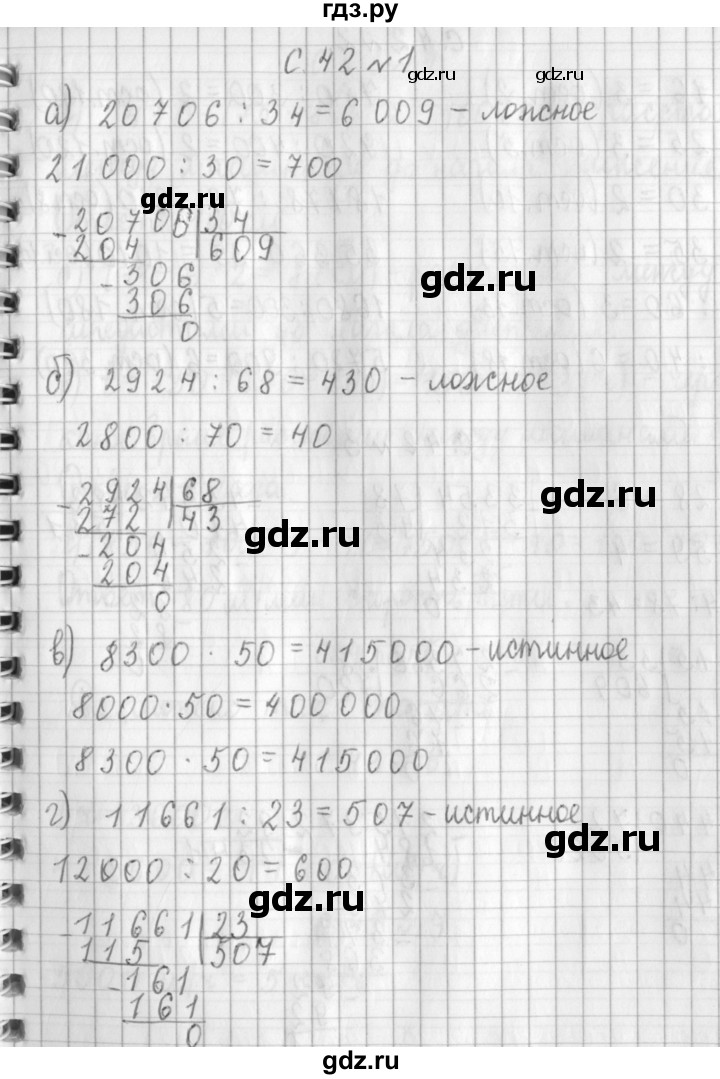 гдз.ру
с. 42 №1
gdz.ru gdz.ru
а) 20706 : 34 = 6 009 – ложное
21 000 : 30 = 700
gdz.ru
- 20706 | 34
204 | 609
- 306
gdz.ru
306
0
б) 2924 : 68 = 430 – ложное
2800 : 70 = 40
- 2924 | 68
gdz.ru
272 | 43
gdz.ru
- 204
204
0
в) 8300 · 50 = 415000 – истинное
8000 · 50 = 400 000
8300 · 50 = 415000
г) 11661 : 23 = 507 – истинное
gdz.ru
12000 : 20 = 600
gdz.ru
- 11661 | 23
115 | 507
- 161
161
0
gdz.ru